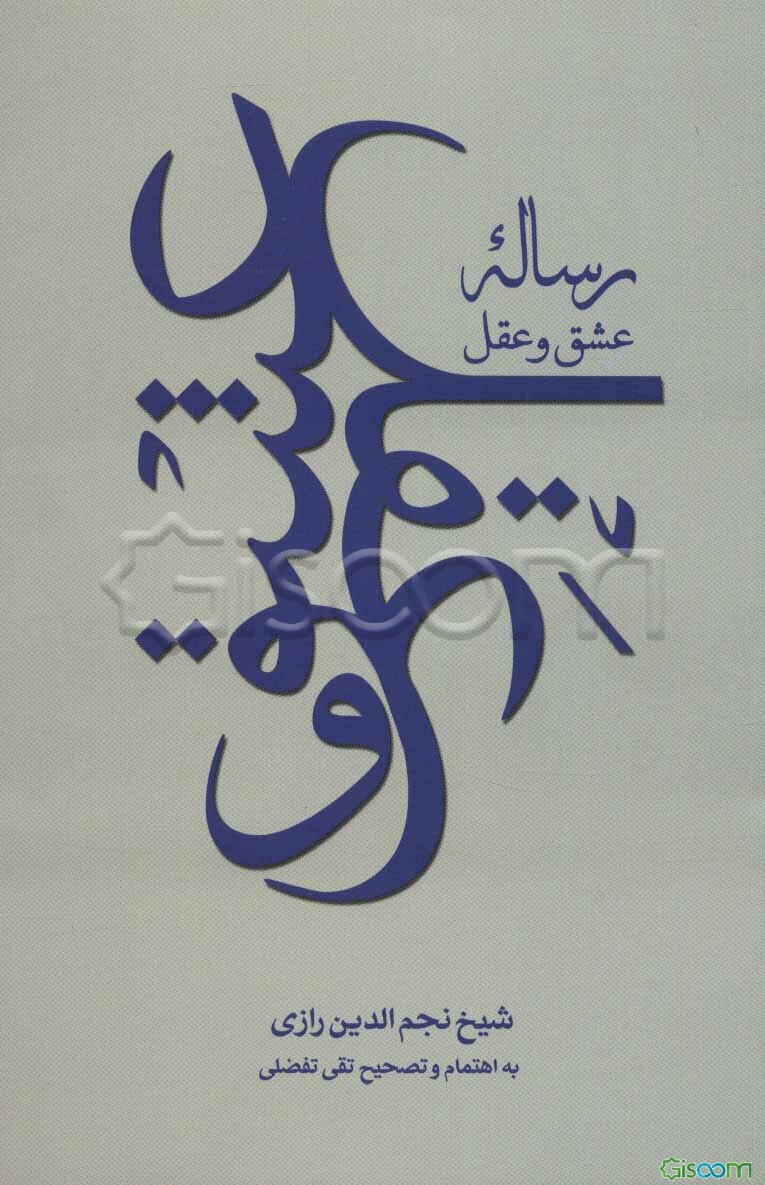 رسالهٔ
عشق و عقل
عشق و عقل
شیخ نجم الدین رازی
به اهتمام و تصحیح تقی تفضلی
Gisoom
Gisoom